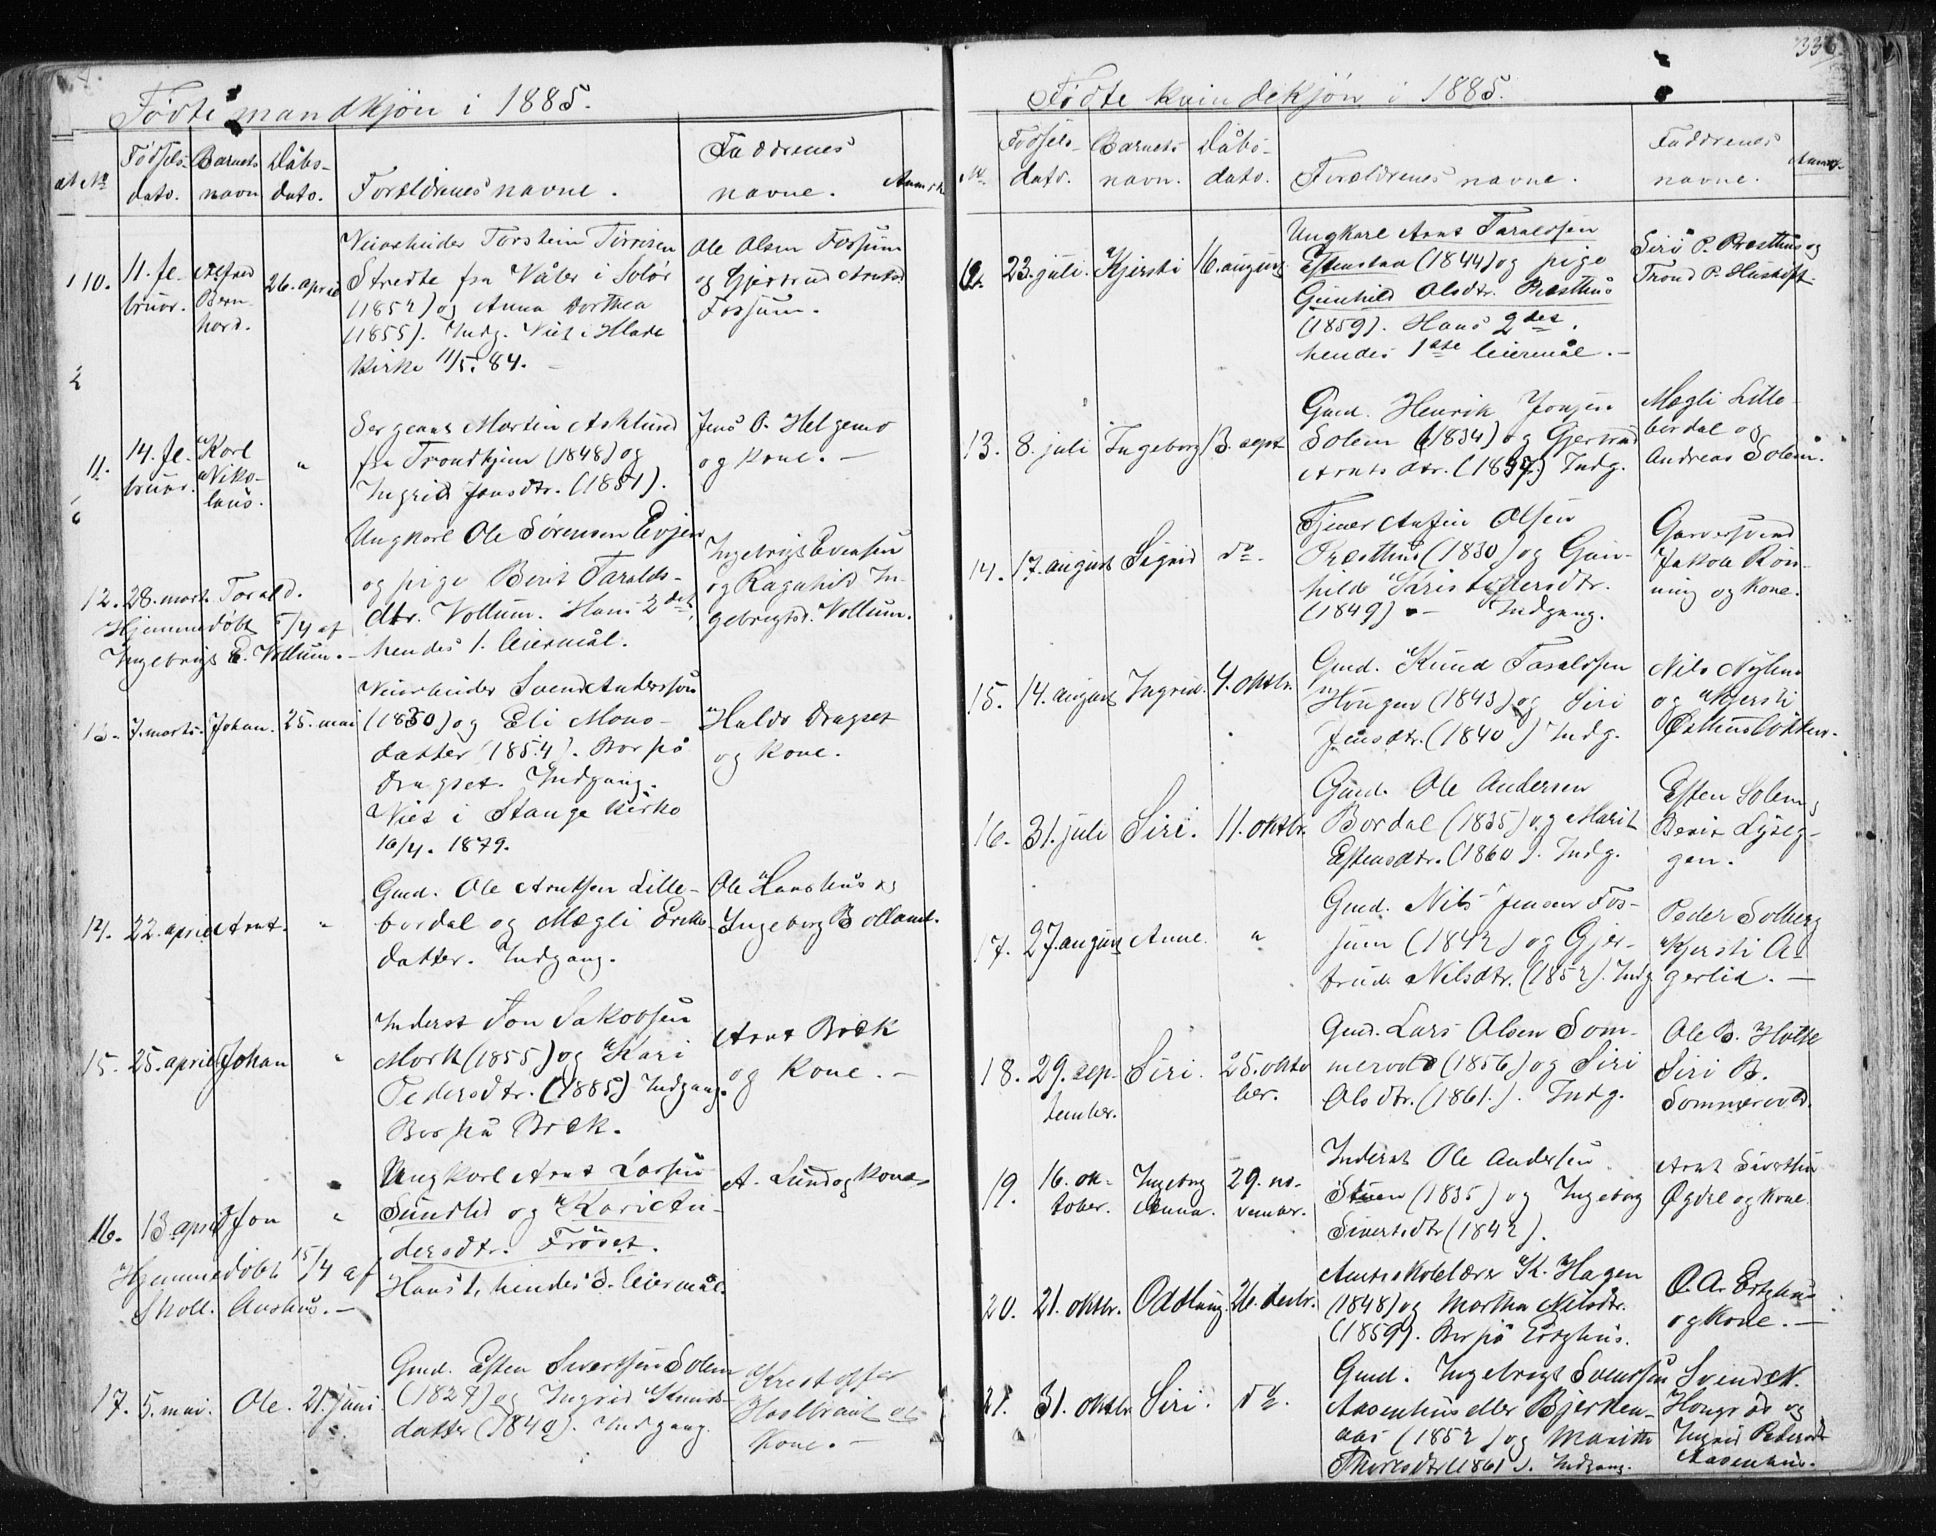 Fødte mandkjøn i 1885.
№
Fødsels-
dato.
Barnets
navn
Dåbs-
dato.
Forældrenes navne.
Faddrenes
navne.
Anmrk
10.
11. fe-
bruar.
Alfred
Bern-
hard.
26. april
Veiarbeider Torstein Torrisen
Stredte fra Våler i Solør
(1852) og Anna Dorthea
(1855). Indg. Viet i Hlade
kirke 11/5. 84. –
Ole Olsen Fossum
og Gjertrud Arntsd.
Fossum.
11.
14. fe-
bruar.
Karl
Niko-
laus.
"
Sergeant Martin Asklund
fra Trondhjem (1848) og
Ingrid Jensdtr. (1851).
Jens O. Helgemo
og kone. –
12. 28. marts Torald.
Hjemmedøbt 5/4 af
Ingebrigt E. Vollum. –
Ungkarl Ole Sørensen Evjen
og pige Berit Taralds-
dtr. Vollum. Hans 2det,
hendes 1. leiermål.
Ingebrigt Evensen
og Ragnhild In-
gebrigtsd. Vollum.
13. 7. marts. Johan. 25. mai
Veiarbeider Svend Anderssen
(1850) og Eli Mons-
datter (1854). Bor på
Dragset. Indgang.
Viet i Stange kirke
16/4. 1879.
Haldo Dragset
og kone.
14. 22. april Arnt. "
Gmd. Ole Arntsen Lille-
bordal og Mægli Eriks-
datter. Indgang.
Ole Haashus og
Ingeborg Bolland.
15. 25. april Johan "
Inderst Jon Jakobsen
Mork (1855) og Kari
Pedersdtr. (1885) Indgang.
Bor på Bræk.
Arnt Bræk
og kone. –
16. 13. april Jon "
Hjemmedøbt 15/4 af
Skoll. Aashus. –
Ungkarl Arnt Larsen
Sundli og Kari An-
dersdtr. Frøset.
Hans 1, hendes 3. leiermål.
A. Lund og kone
17. 5. mai. Ole. 21. juni
Gmd. Esten Sivertsen Solem
(1827) og Ingrid Knuds-
datter (1840). Indgang.
Kristoffer
Haltbrant og
kone. –
336.
Fødte kvindekjøn i 1885.
№
Fødsels-
dato.
Barnets
navn.
Dåbs-
dato.
Forældrenes navne.
Faddrenes
navne.
Anmrk.
12. 23. juli. Kjersti 16. august
Ungkarl Arnt Taraldsen
Estenstad (1844) og pige
Gunhild Olsdtr. Præsthus
(1859). Hans 2det,
hendes 1ste leiermål. –
Siri P. Præsthus og
Trond P. Huskift
13. 8. juli Ingeborg 13. sept
Gmd. Henrik Jonsen
Solem (1834) og Gjertrud
Arntsdtr. (1837) Indg.
Mægli Lille-
bordal og
Andreas Solem.
14. 17. august Sigrid do.
Tjener Anfin Olsen
Præsthus (1830) og Gun-
hild Kristofersdtr.
(1849) – Indgang.
Garversvend
Jakob Røn-
ning og kone.
15. 14. august Ingrid. 4. oktbr.
Gmd. Knud Taraldsen
Haugen (1843) og Siri
Jensdtr. (1840) Indg.
Nils Nylund
og Kjersti
Østhusløkken.
16. 31. juli Siri. 11. oktbr.
Gmd. Ole Andersen
Bordal (1835) og Marit
Estensdtr. (1860). Indg.
Esten Solem,
Berit Lyseg-
gen.
17. 27. august Anne. "
Gmd. Nils Jensen Fos-
sum (1842) og Gjer-
trud Nilsdtr. (1852). Indg
Peder Solberg
Kjersti A-
gerlia. –
18. 29. sep-
tember. Siri. 25. okto
ber.
Gmd. Lars Olsen Som-
mervold (1856) og Siri
Olsdtr. (1861.). Indg.
Ole B. Holte
Siri B.
Sommervold.
19. 16. ok-
tober. Ingeborg
Anna. 29. no-
vember.
Inderst Ole Andersen
Stuen (1835) og Ingeborg
Sivertsdtr (1842).
Arnt Sivertsen
Øgdal og kone
20. 21. oktbr. Oddlaug. 26. decbr.
Amtsskolelærer K. Hagen
(1848) og Martha Nilsdtr.
(1859). Bor på Ertzhus.
O. A. Ertzhus
og kone. –
21. 31. oktbr Siri. do.
Gmd. Ingebrigt Svendsen
Aasenhus eller Bjerken-
aas (1852) og Marith
Thoresdtr (1861). Indgang.
Svend N.
Haugrød og
Ingrid Pedersdt
Aasenhus.